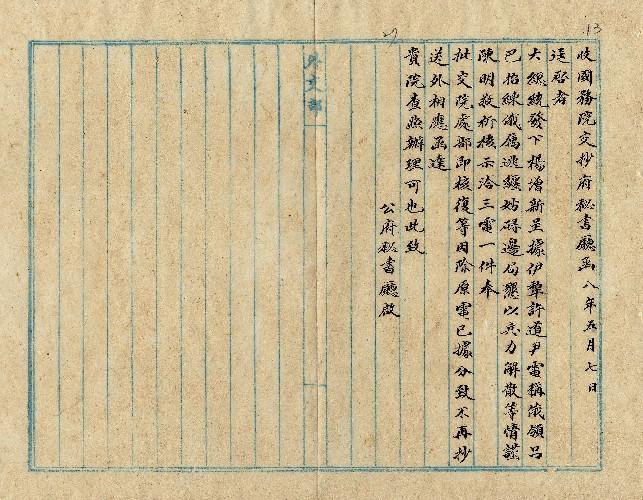 收國務院交抄府秘書廳函 八年五月七日
逕啓者
大總統發下楊增新呈據伊犂許道尹電稱俄領呂
巴招練俄屬逃纏妨碍邊局懇以兵力解散等情謹
陳明敬祈核示洽三電一件奉
批交院處部即核復等因除原電已據分致不再抄
送外相應函達
貴院查照辦理可也此致
公府秘書廳啟
外交部
13